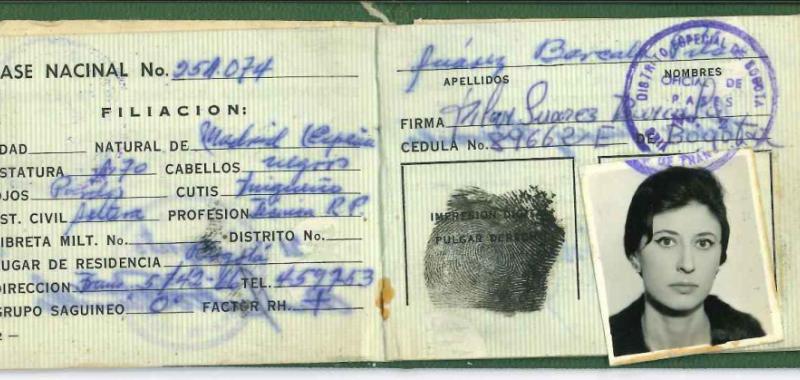 ASE NACINAL No. 251.074
FILIACION:
DAD NATURAL DE Madrid (España
STATURA 1,70 CABELLOS negros
OJOS Pardos CUTIS trigueño
ST. CIVIL soltera PROFESION R.P.
IBRETA MILT. No. DISTRITO No.
UGAR DE RESIDENCIA Bogotá
DIRECCION TEL. 459253
GRUPO SAGUINEO "O" FACTOR RH. +
2 —
Suárez
APELLIDOS NOMBRES
FIRMA Suarez
CEDULA No. 89662 E de Bogotá
IMPRESION DIGITAL
PULGAR DERECHO
DISTRITO ESPECIAL DE BOGOTA
OFICIAL DE
PASES